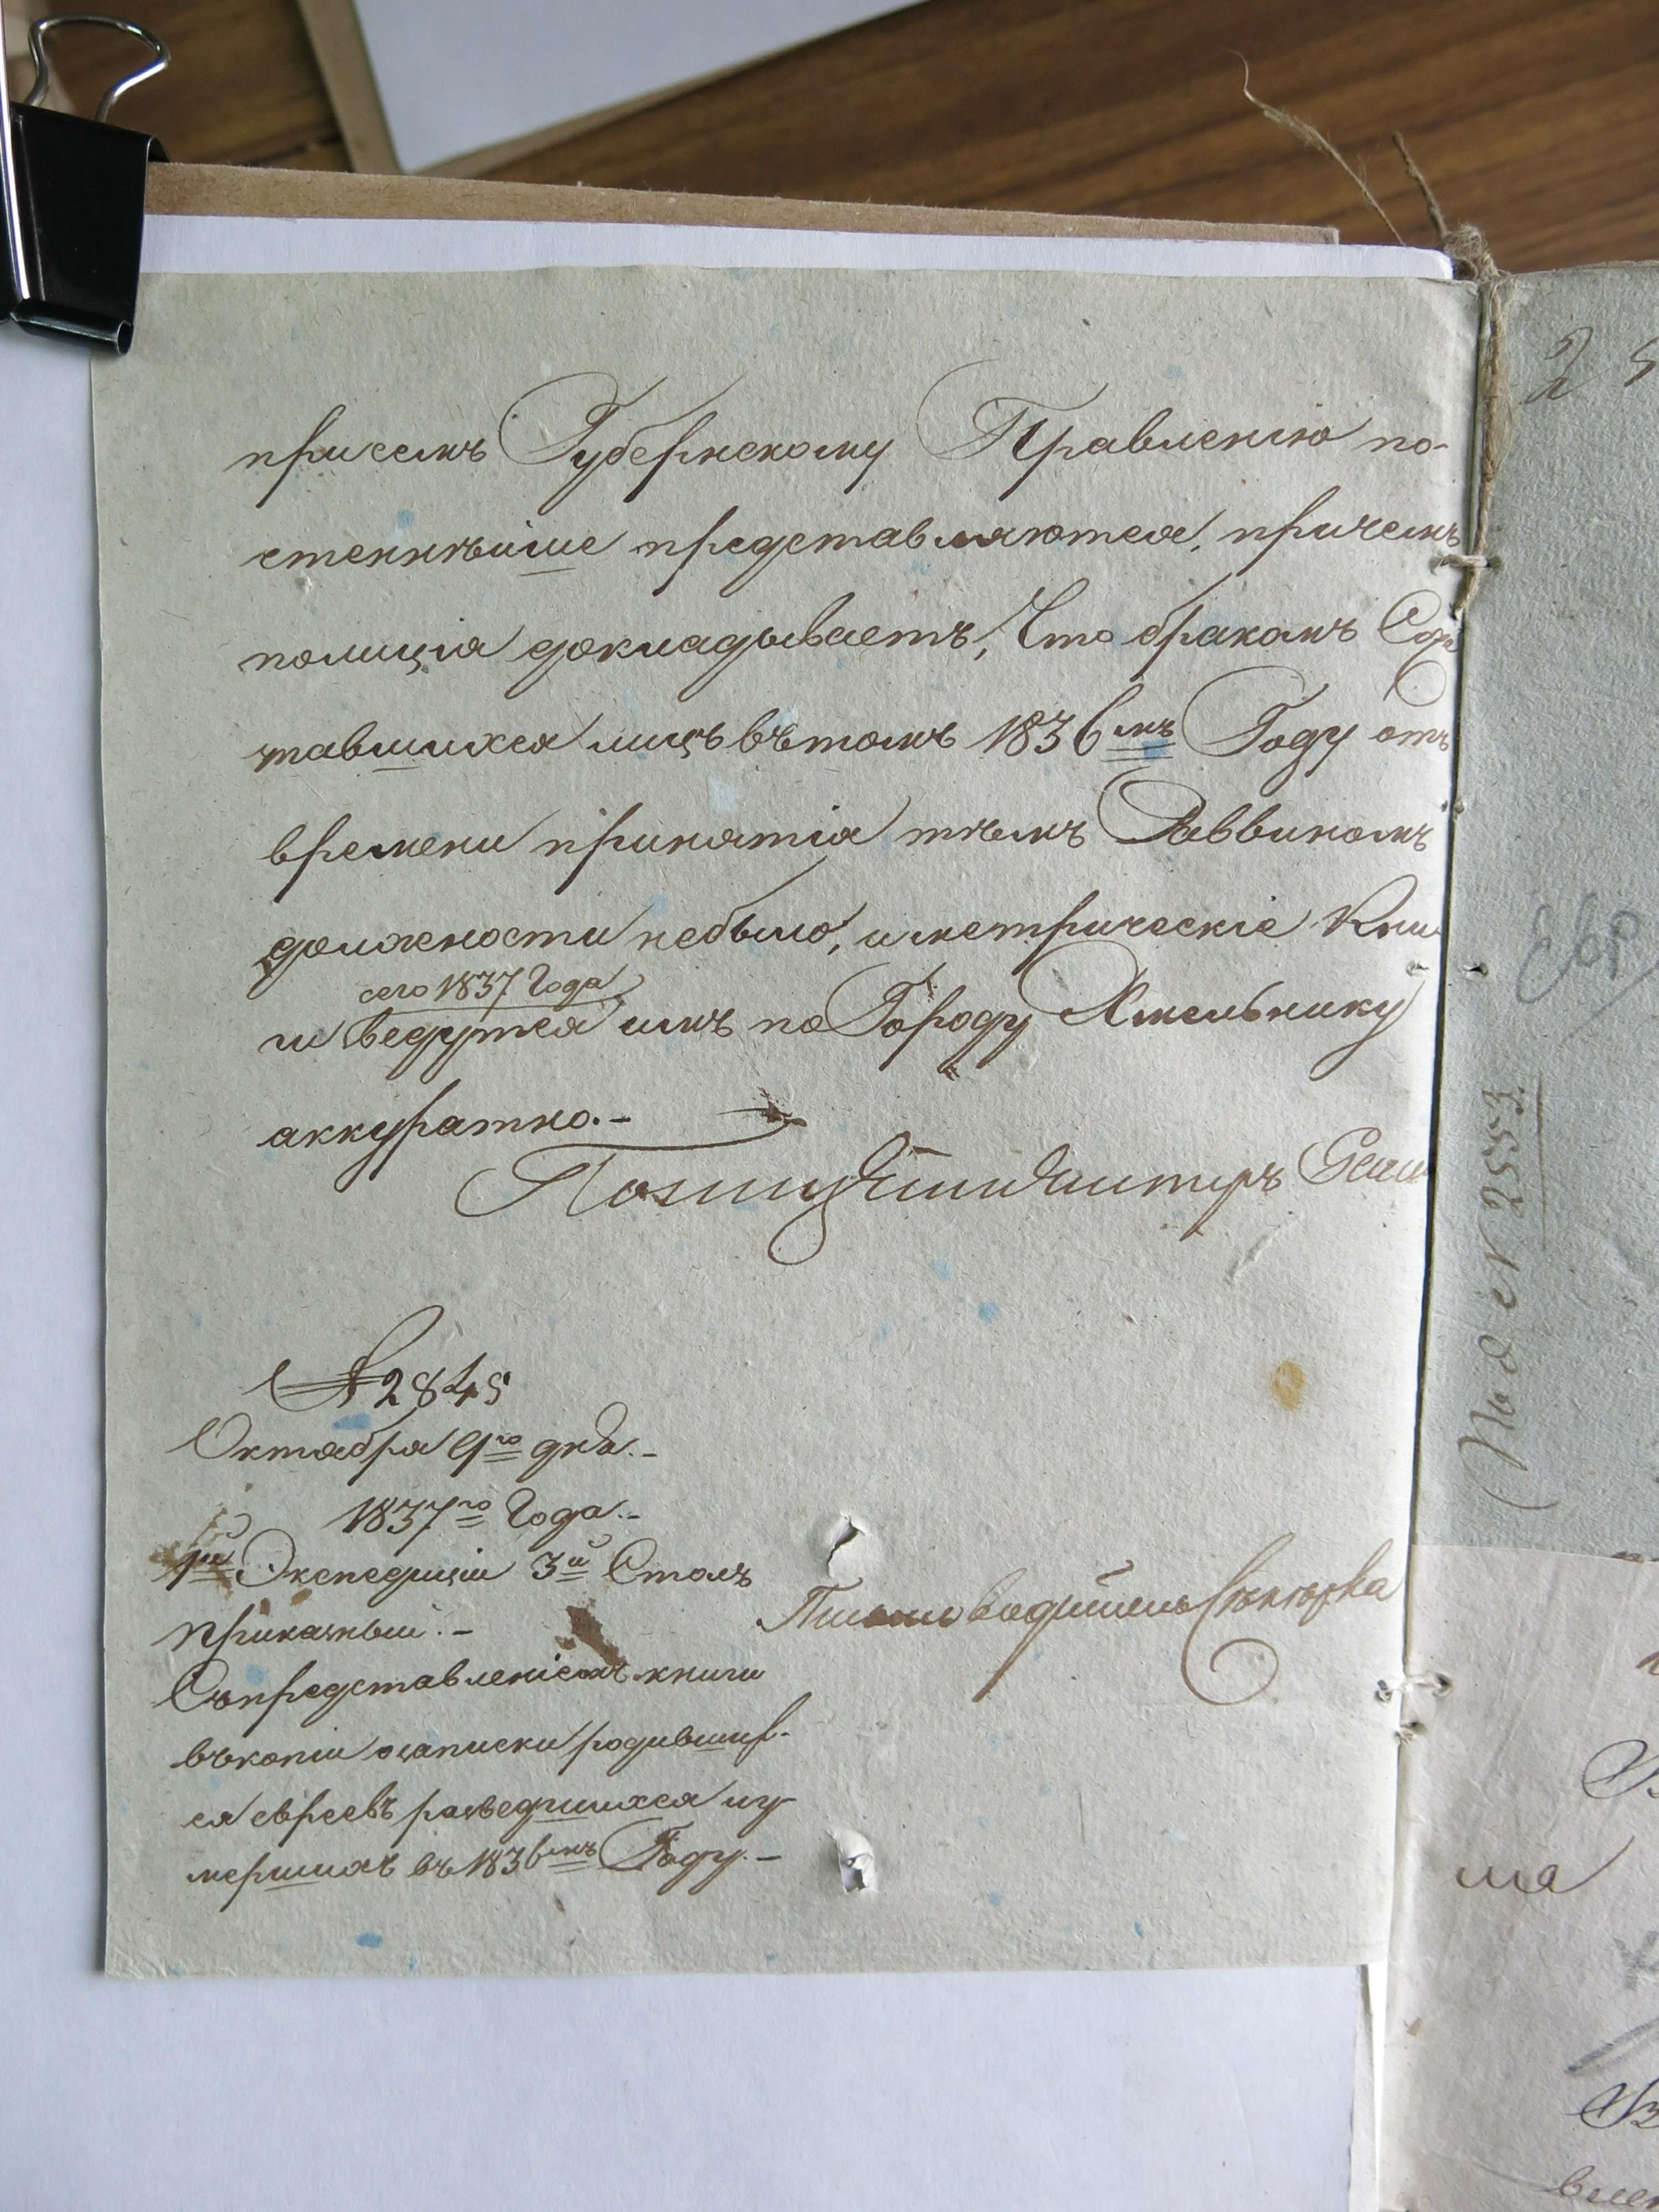 присемъ Губернскому Правленію по-
стеннѣише представляются, причемъ
полиція докладываетъ, Что бракомъ Соче
тавшихся лицъ вѣтомъ 1836мъ Году отъ
времени принятія тѣмъ Раввиномъ
должности небыло, и метрическіе Кни
сего 1837 Года
ги ведутся имъ по Городу Хмельнику
аккуратно.-
Полицѣймейстеръ
№ 2845
Октября 9го дня.-
1837го Года.-
1й Экспедиціи 3й Столъ
приказный.-
Съпредставленіемъ книги
въкопіи озаписки родивших-
ся евреевъ разведшихся иу
мершихъ въ 1836мъ Году.-
Письмоводитель
2
Евр
Nad er 2553.
ма